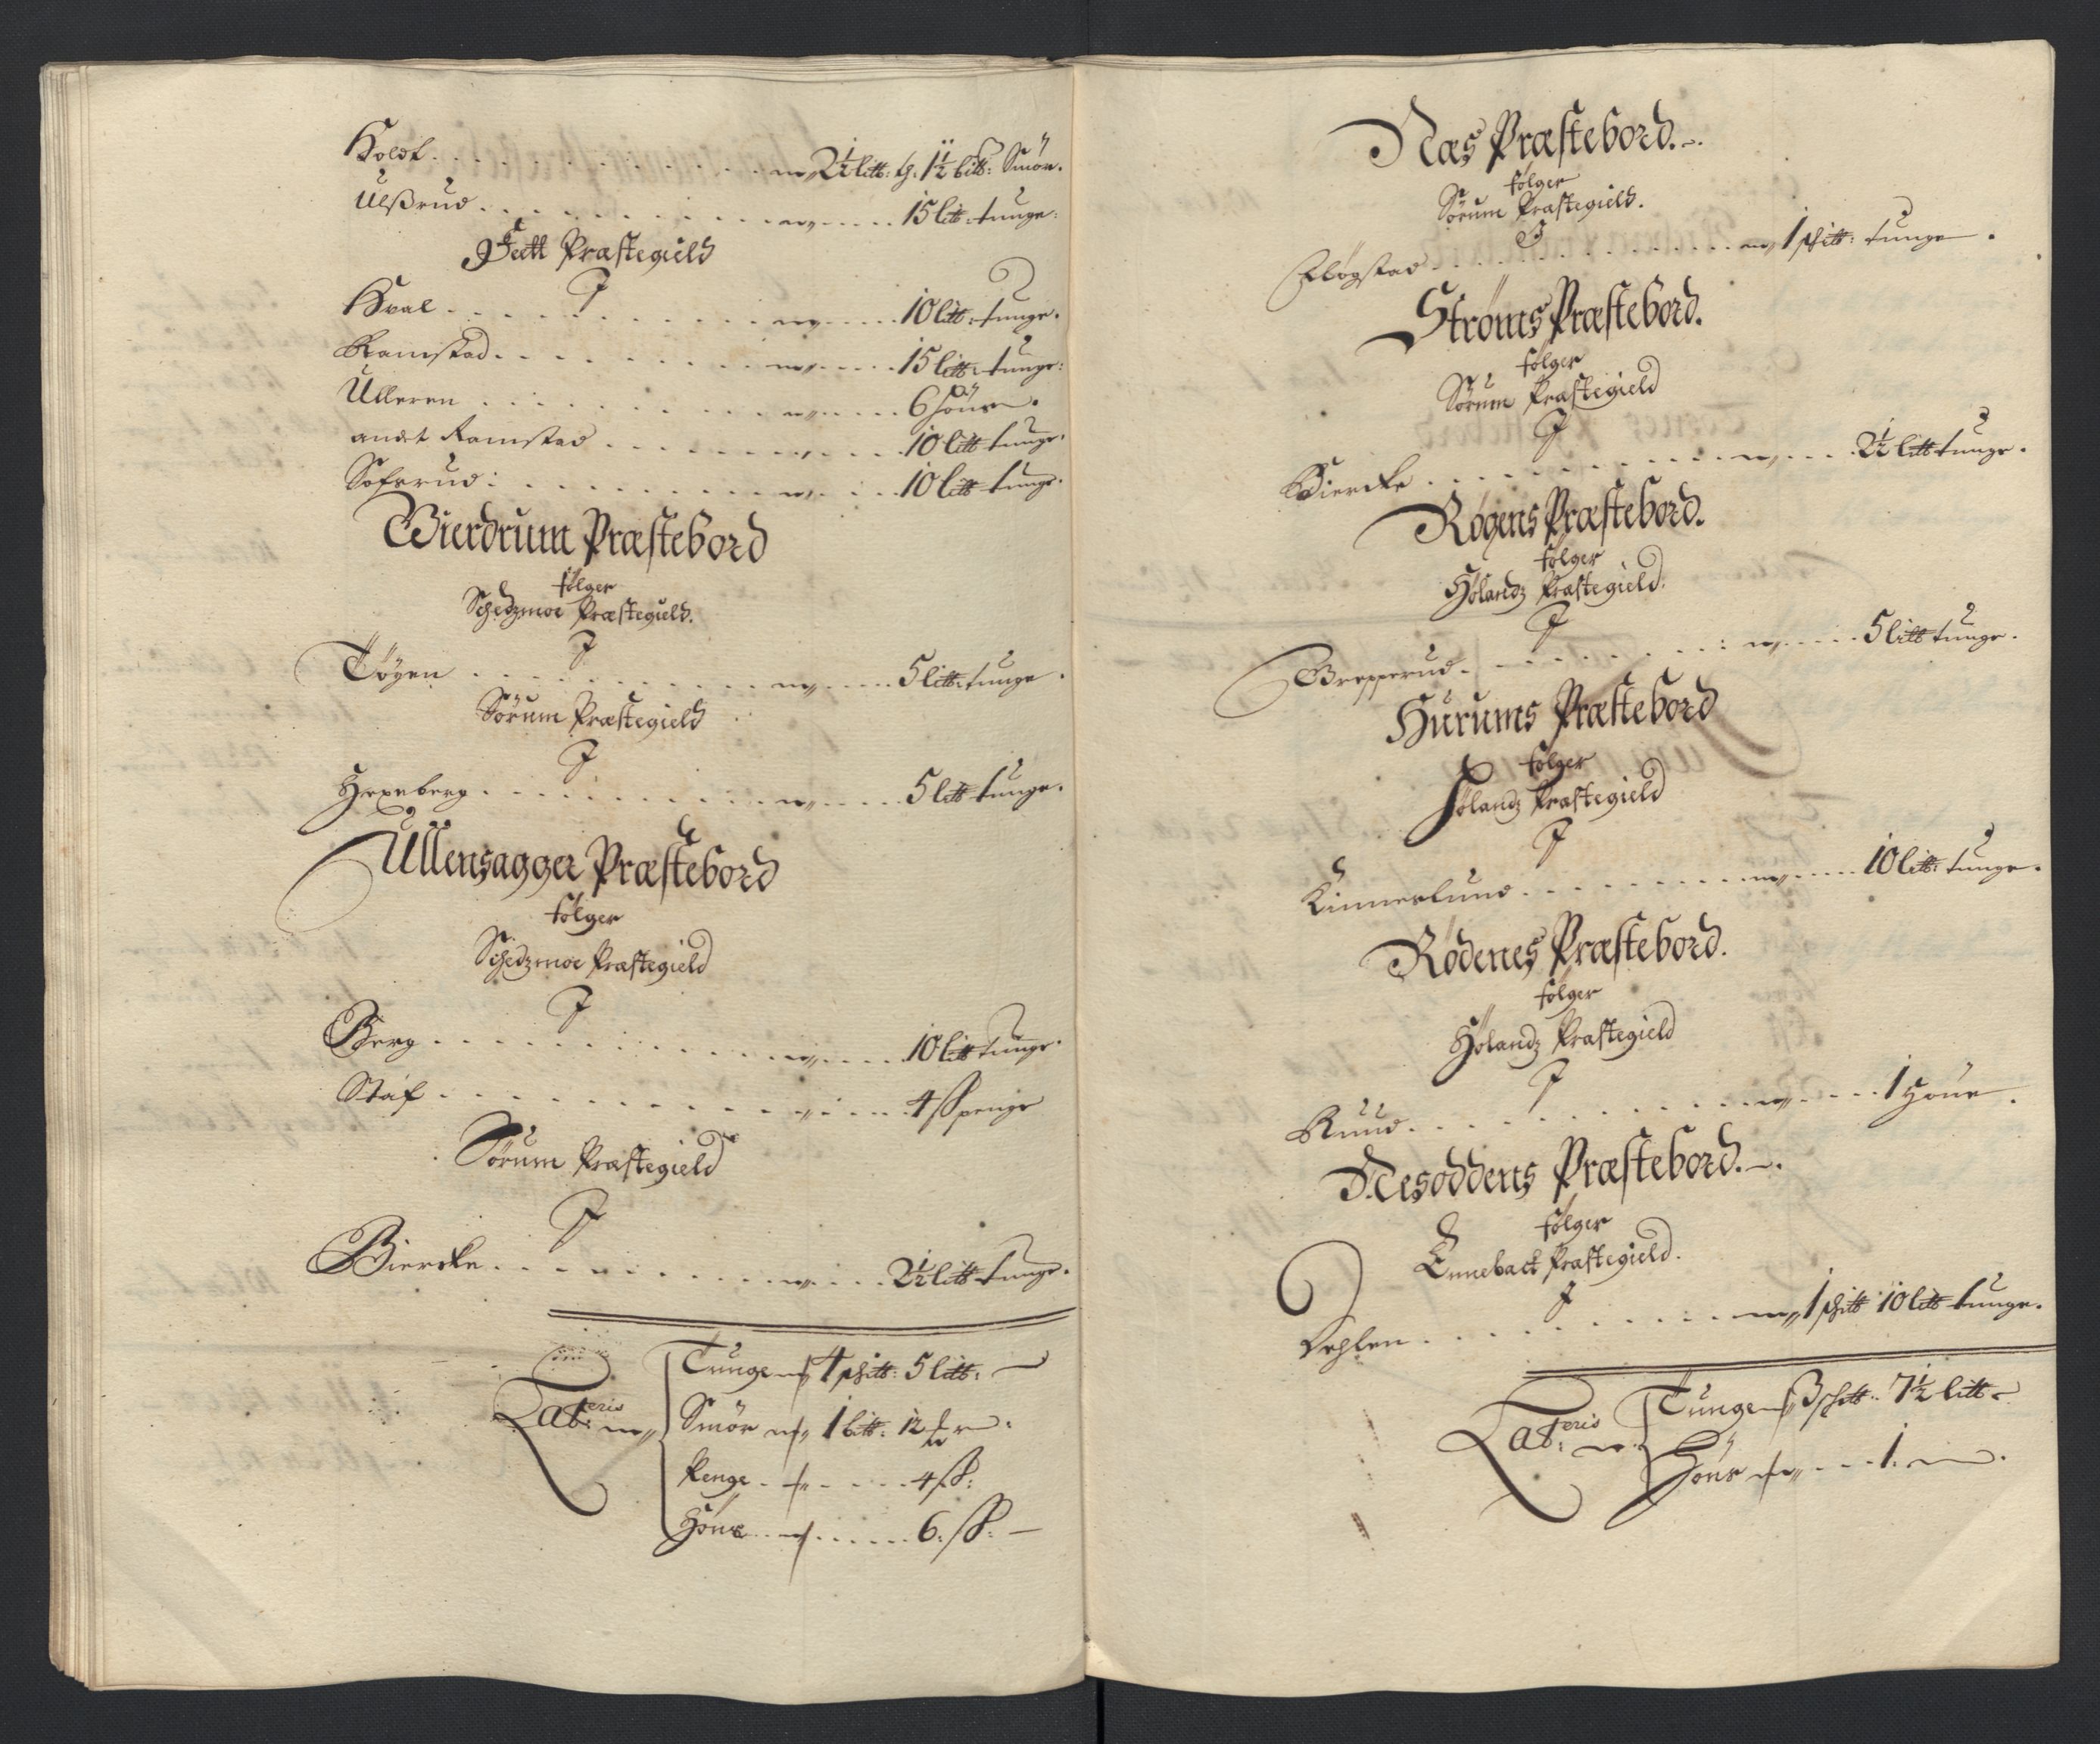 Holdt . . . . . . . . . . . . 2½ litt: h. 1½ bitt: Smör.
Ulßrud . . . . . . . . . . . . 15 litt: tunge:
Feett Præstegield
J
Hval . . . . . . . . . . . . 10 litt: tunge.
Ramstad . . . . . . . . . . . . 15 litt: tunge:
Ulleren . . . . . . . . . . . . 6 höns.
andet Ramstad . . . . . . . . . . 10 litt tunge.
Sofsrud: . . . . . . . . . . . . 10 litt tunge.
Gierdrum Præstebord
følger
Schedzmoe Præstegield.
J
Töyen . . . . . . . . . . . . 5 litt: tunge.
Sörum Præstegield
J
Hexeberg . . . . . . . . . . . . 5 litt tunge.
Ullensagger Præstebord
følger
Schedzmoe Præstegield
J
Berg . . . . . . . . . . . . 10 litt tunge.
Staf . . . . . . . . . . . . 4 ß penge
Sörum Præstegield
J
Biercke . . . . . . . . . . . . 2½ litt tunge.
Tunge 4 schitt: 5 litt:
Lat:eris Smör 1 bitt: 12
Penge . . . . . 4 ß:
Höns . . . . . 6: ß:
Næs Præstebord.
følger
Sørum Præstegield.
J
Fløgstad . . . . . . . . . . . . 1 schitt: tunge.
Ströms Præstebord.
følger
Sørum Præstegield
J
Biercke . . . . . . . . . . . . 2½ litt tunge.
Røgens Præstebord.
følger
Hölandz Præstegield.
J
Grepperud . . . . . . . . . . . . 5 litt tunge.
Hurums Præstebord
følger
Hölandz Præstegield
J
Kinnerlund . . . . . . . . . . . . 10 litt: tunge.
Rødenes Præstebord.
følger
Hölandz Præstegield
J
Ruud . . . . . . . . . . . . 1 Höns.
Nesoddens Præstebord.
følger
Ennebact Præstegield.
J
Vehlen . . . . . . . . . . . . 1 schitt 10 litt tunge.
Tunge 3 schitt: 7½ litt
Lat:eris
Höns . . . 1.